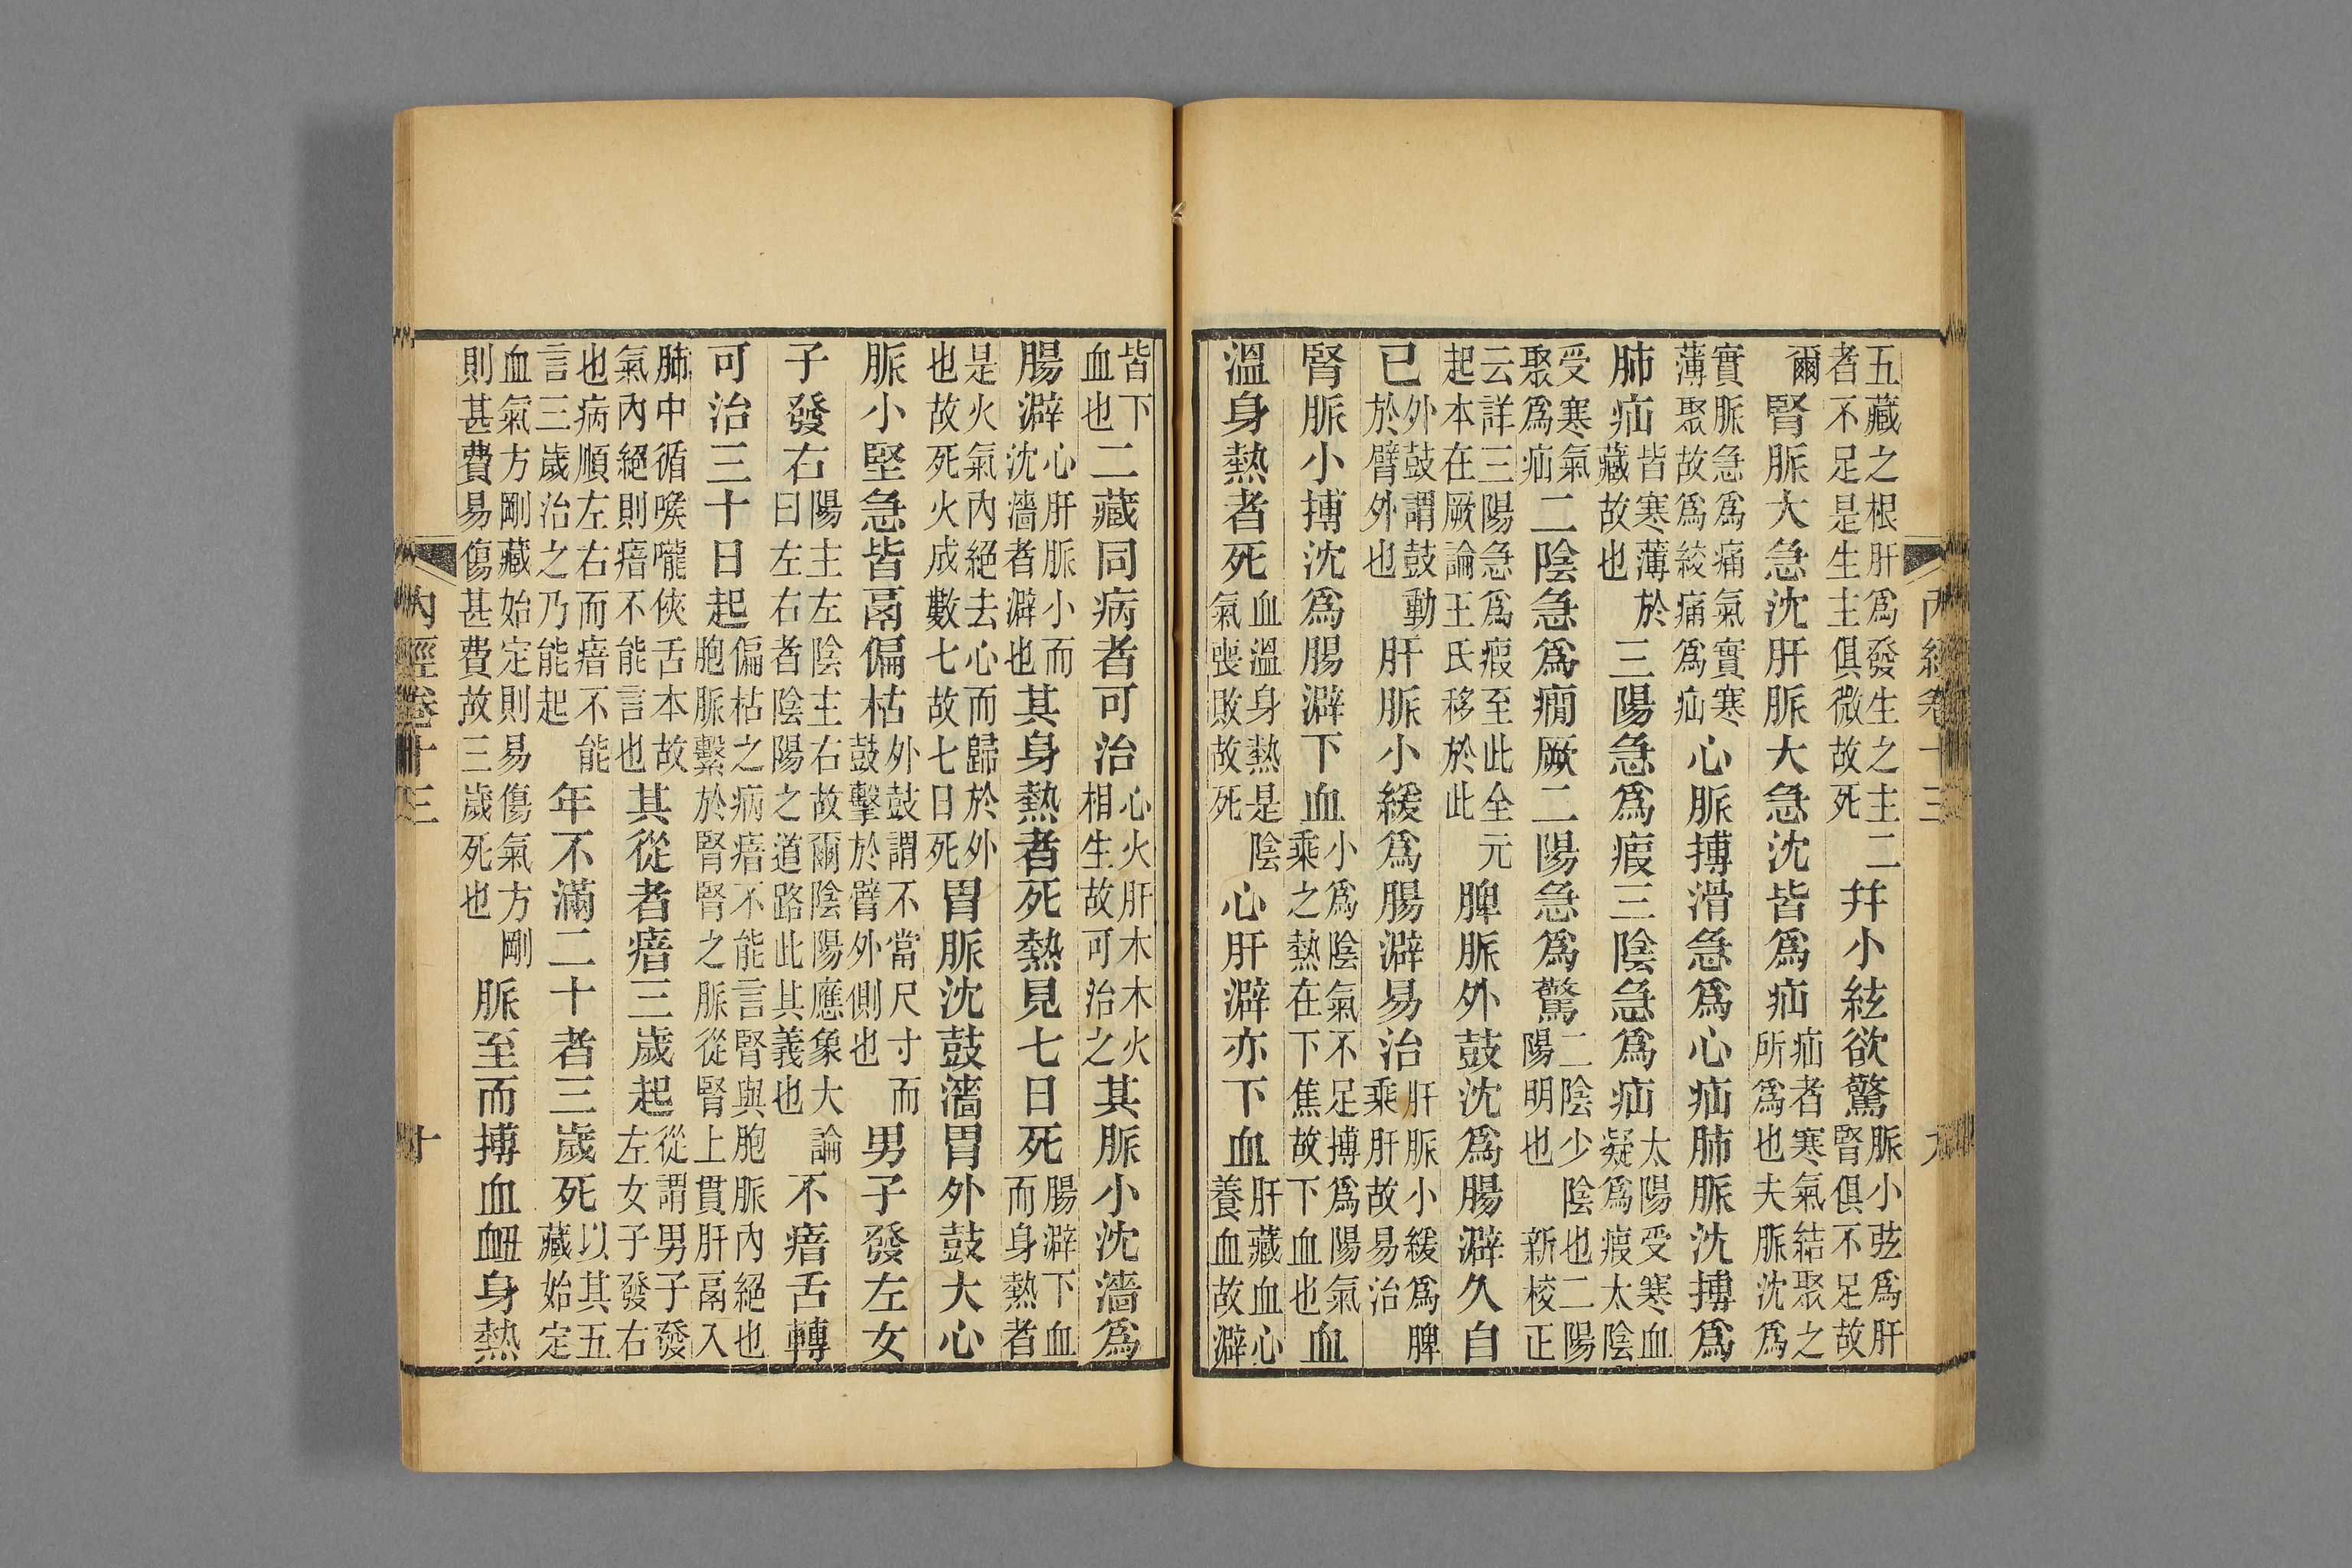 五藏之根肝爲發生之主二者不足是生主俱微故死幷小絃欲驚脈小弦爲肝腎俱不足故
爾腎脈大急沈肝脈大急沈皆爲疝疝者寒氣結聚之所爲也夫脈沈爲
實脈急爲痛氣實寒薄聚故爲絞痛爲疝心脈搏滑急爲心疝肺脈沈搏爲
肺疝皆寒薄於藏故也三陽急爲瘕三陰急爲疝太陽受寒血凝爲瘕太陰
受寒氣聚爲疝二陰急爲癇厥二陽急爲驚二陰少陰也二陽陽明也新校正
云詳三陽急爲瘕至此全元起本在厥論王氏移於此脾脈外鼓沈爲腸澼久自
已外鼓謂鼓動於臂外也肝脈小緩爲腸澼易治肝脈小緩爲脾乘肝故易治
腎脈小搏沈爲腸澼下血小爲陰氣不足搏爲陽氣乘之熱在下焦故下血也血
溫身熱者死血溫身熱是陰氣喪敗故死心肝澼亦下血肝藏血心養血故澼
皆下血也二藏同病者可治心火肝木木火相生故可治之其脈小沈濇爲
腸澼心肝脈小而沈濇者澼也其身熱者死熱見七日死腸澼下血而身熱者
是火氣內絕去心而歸於外也故死火成數七故七日死胃脈沈鼓濇胃外鼓大心
脈小堅急皆鬲偏枯外鼓謂不當尺寸而鼓擊於臂外側也男子發左女
子發右陽主左陰主右故爾陰陽應象大論曰左右者陰陽之道路此其義也不瘖舌轉
可治三十日起偏枯之病瘖不能言腎與胞脈內絕也胞脈繫於腎腎之脈從腎上貫肝鬲入
肺中循喉嚨俠舌本故氣內絕則瘖不能言也其從者瘖三歲起從謂男子發左女子發右
也病順左右而瘖不能言三歲治之乃能起年不滿二十者三歲死以其五藏始定
血氣方剛藏始定則易傷氣方剛則甚費易傷甚費故三歲死也脈至而搏血衄身熱
內經卷十三 十